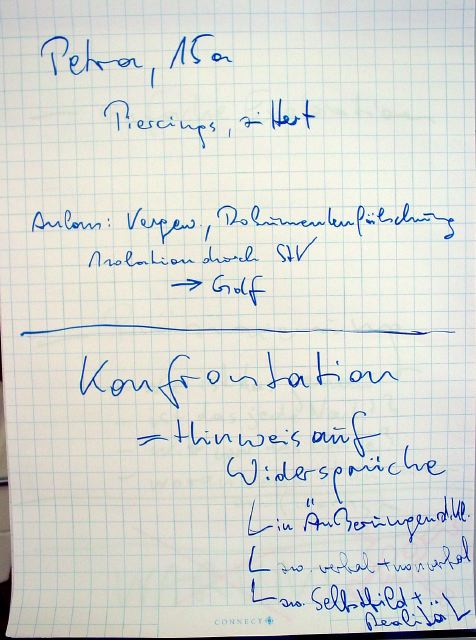 Petra, 15a
Piercings, zittert
Anlass: Vergew., Dokumentenfälschung
Isolation durch StV
→ Golf
Konfrontation
= Hinweis auf
Widersprüche
in Äußerungen d. Kl.
zw. verbal + nonverbal
zw. Selbstbild +
Realität
CONNECT